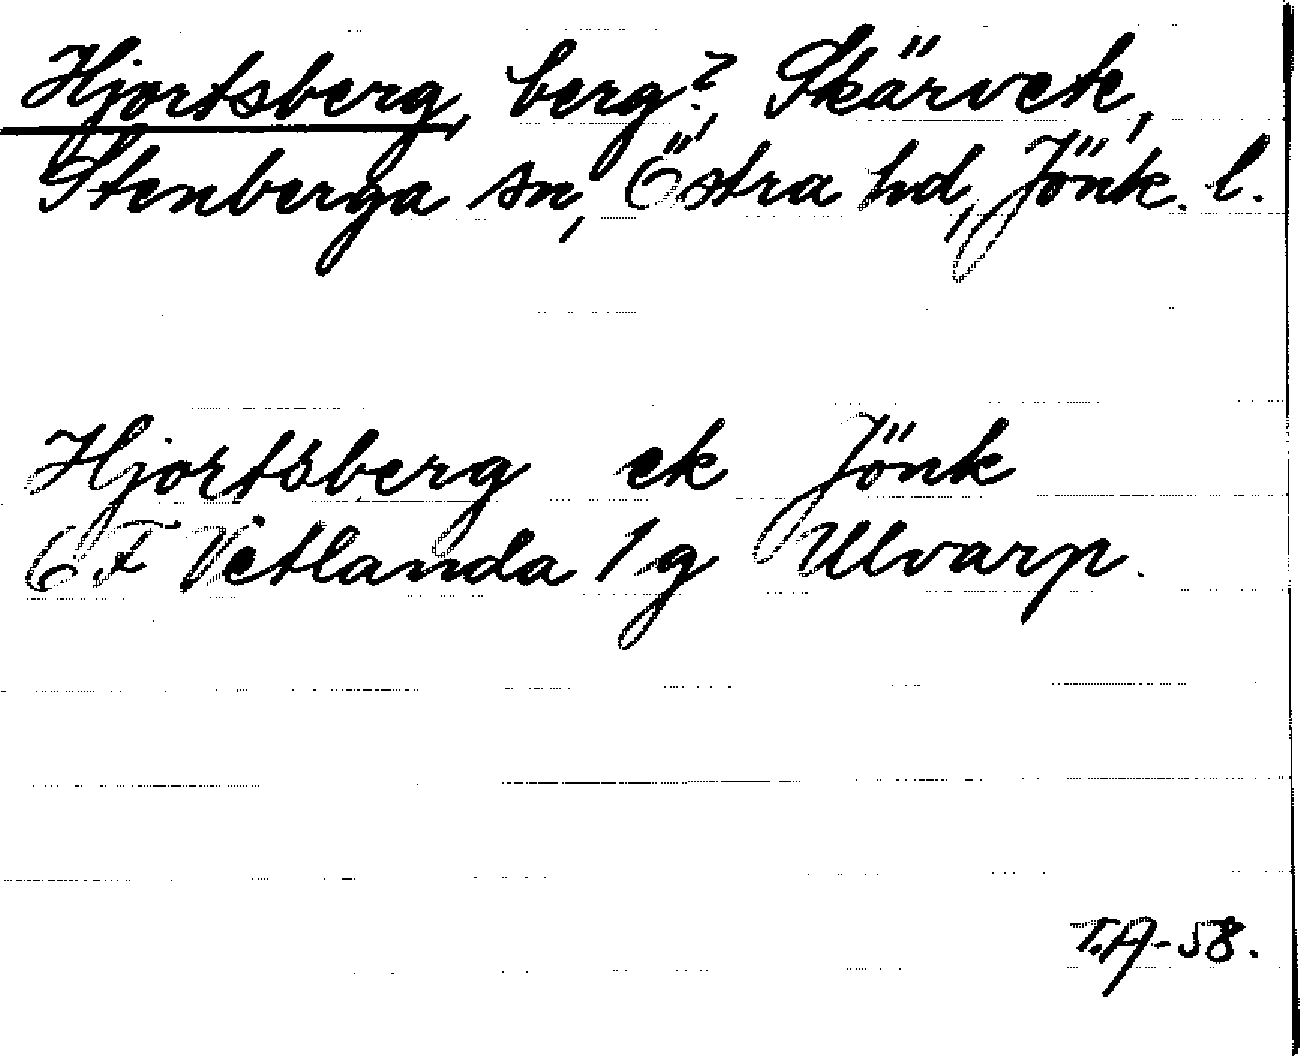 Hjortsberg, berg?, Skärvete,
Stenberga sn, Östra hd, Jönk. l.
Hjortsberg ek Jönk
6 F Vetlanda 1 g Ulvarp.
T.A-58.